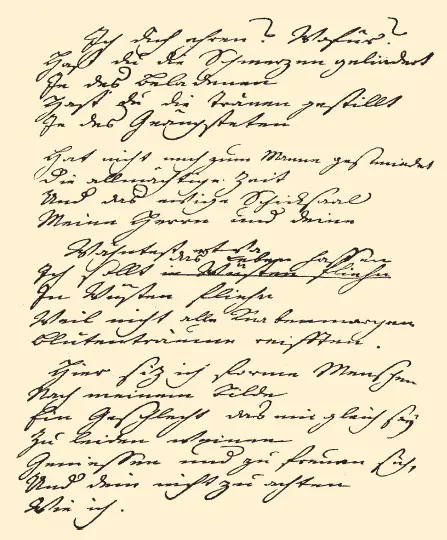 Ich dich ehren? Wofür?
Hast du die Schmerzen gelindert
Je des Beladenen
Hast du die Tränen gestillt
Je des Geängsteten
Hat nicht mich zum Manne geschmiedet
Die allmächtige Zeit
Und das ewige Schicksaal
Meine Herrn und deine
Wähntest etwa
das Leben hassen
Ich sollt in Wüsten fliehn
In Wüsten fliehn
Weil nicht alle Knabenmorgen
Blütenträume reifften.
Hier siz ich forme Menschen
Nach meinem Bilde
Ein Geschlecht das mir gleich sey
Zu leiden weinen
Geniessen und zu freuen sich,
Und dein nicht zu achten
Wie ich.